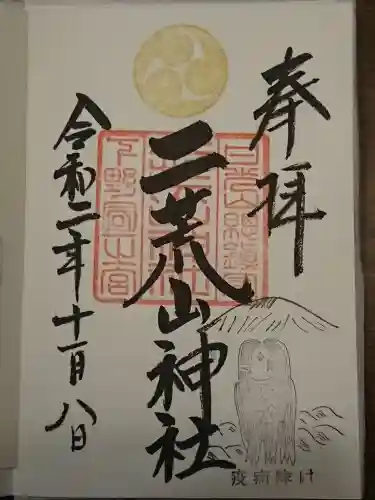 奉拝
二荒山神社
令和二年十一月八日
下野国一之宮
疫病除け